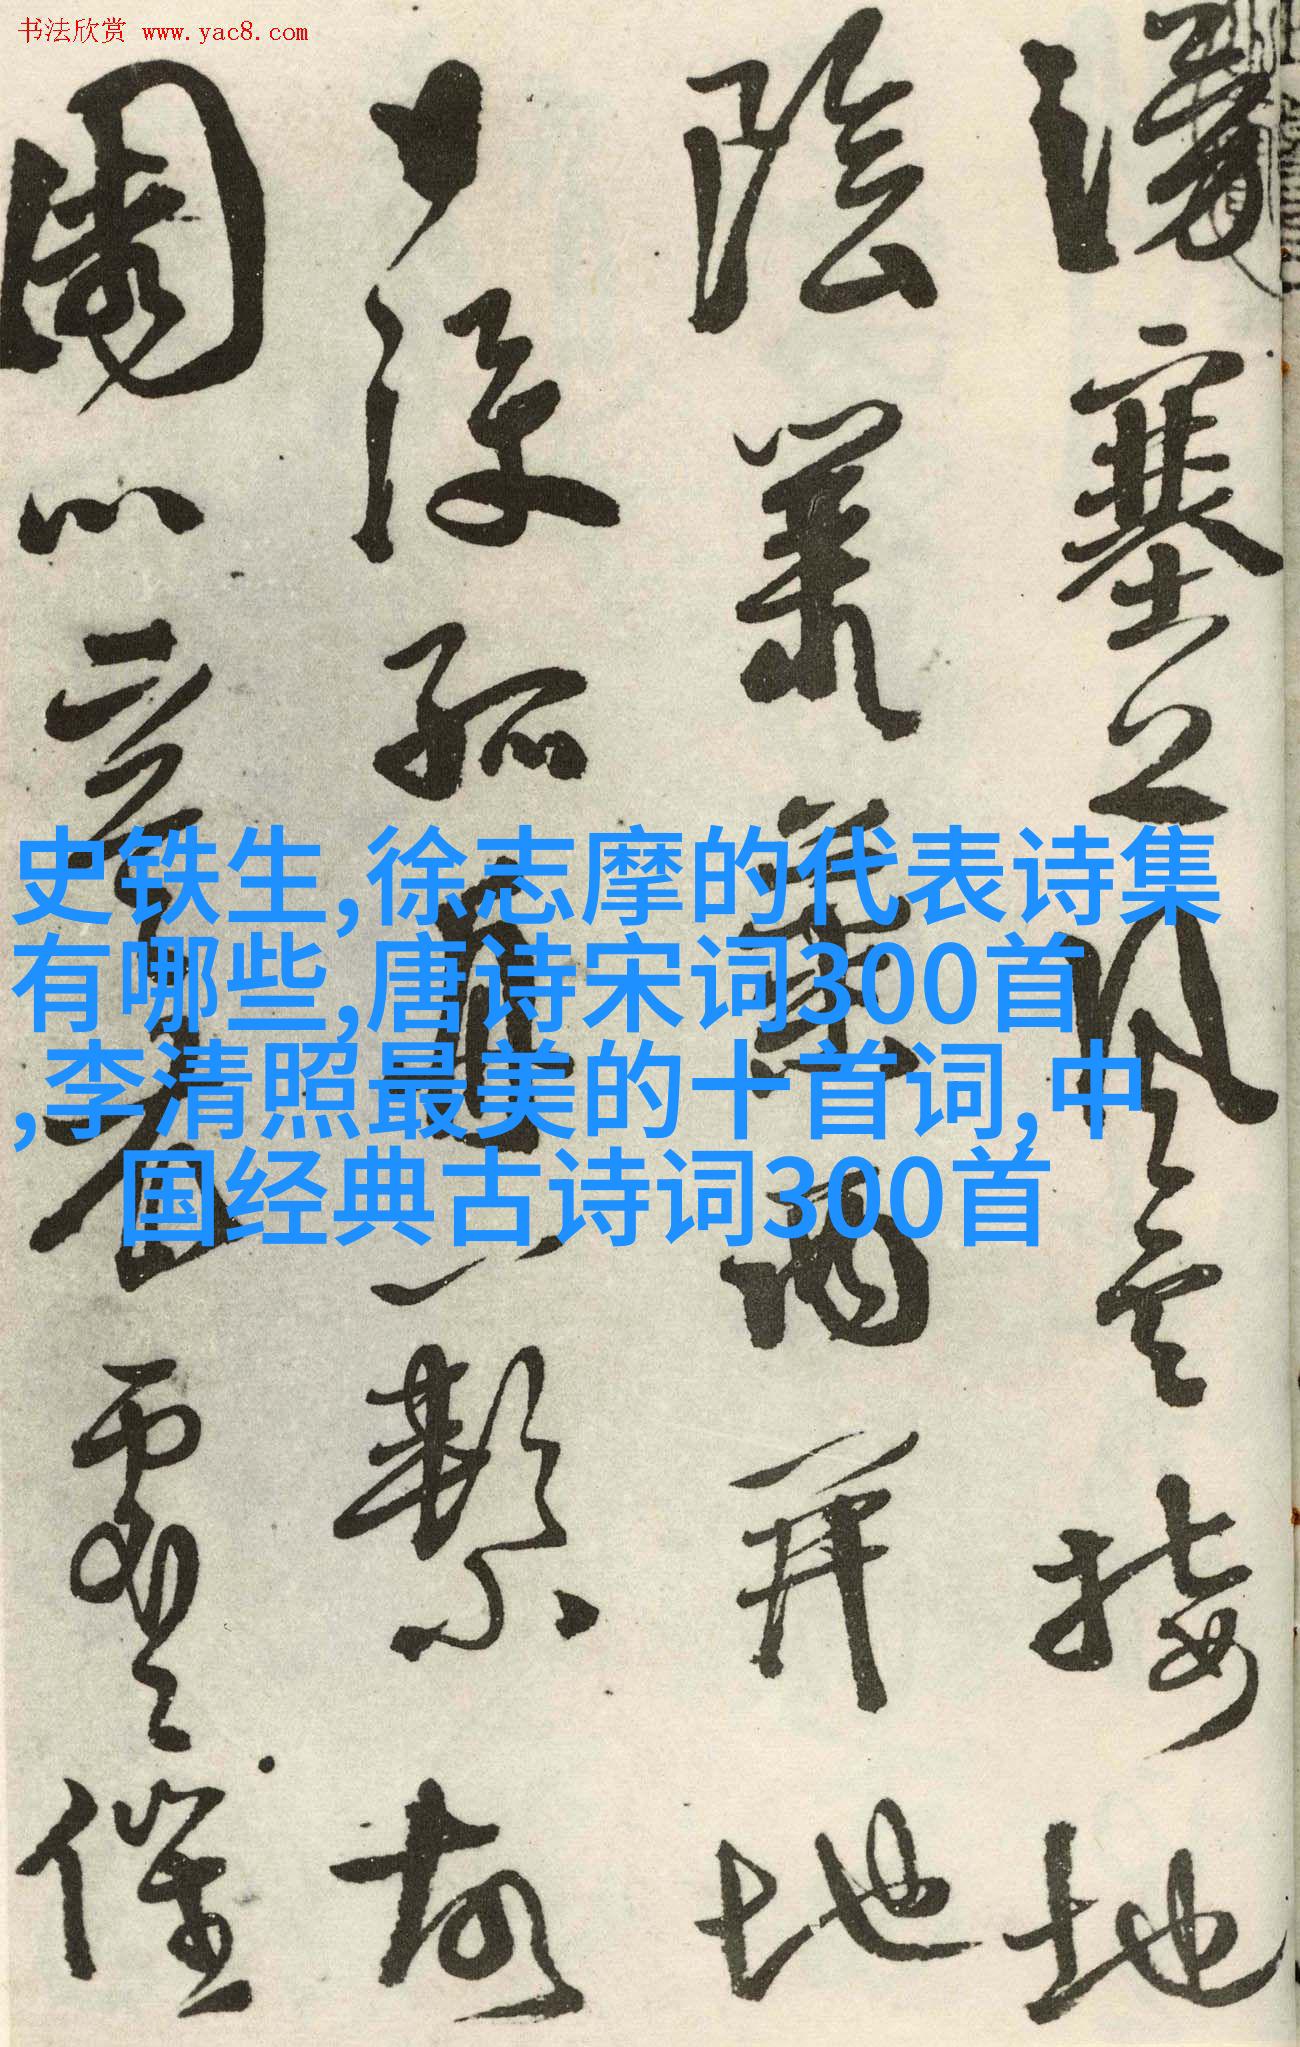 书法欣赏 www.yac8.com
湧塞上風雲接地
陰叢菊兩開他
日淚孤舟一繫故
園心寒衣處〻催
史铁生,徐志摩的代表诗集
有哪些,唐诗宋词300首
,李清照最美的十首词,中
国经典古诗词300首